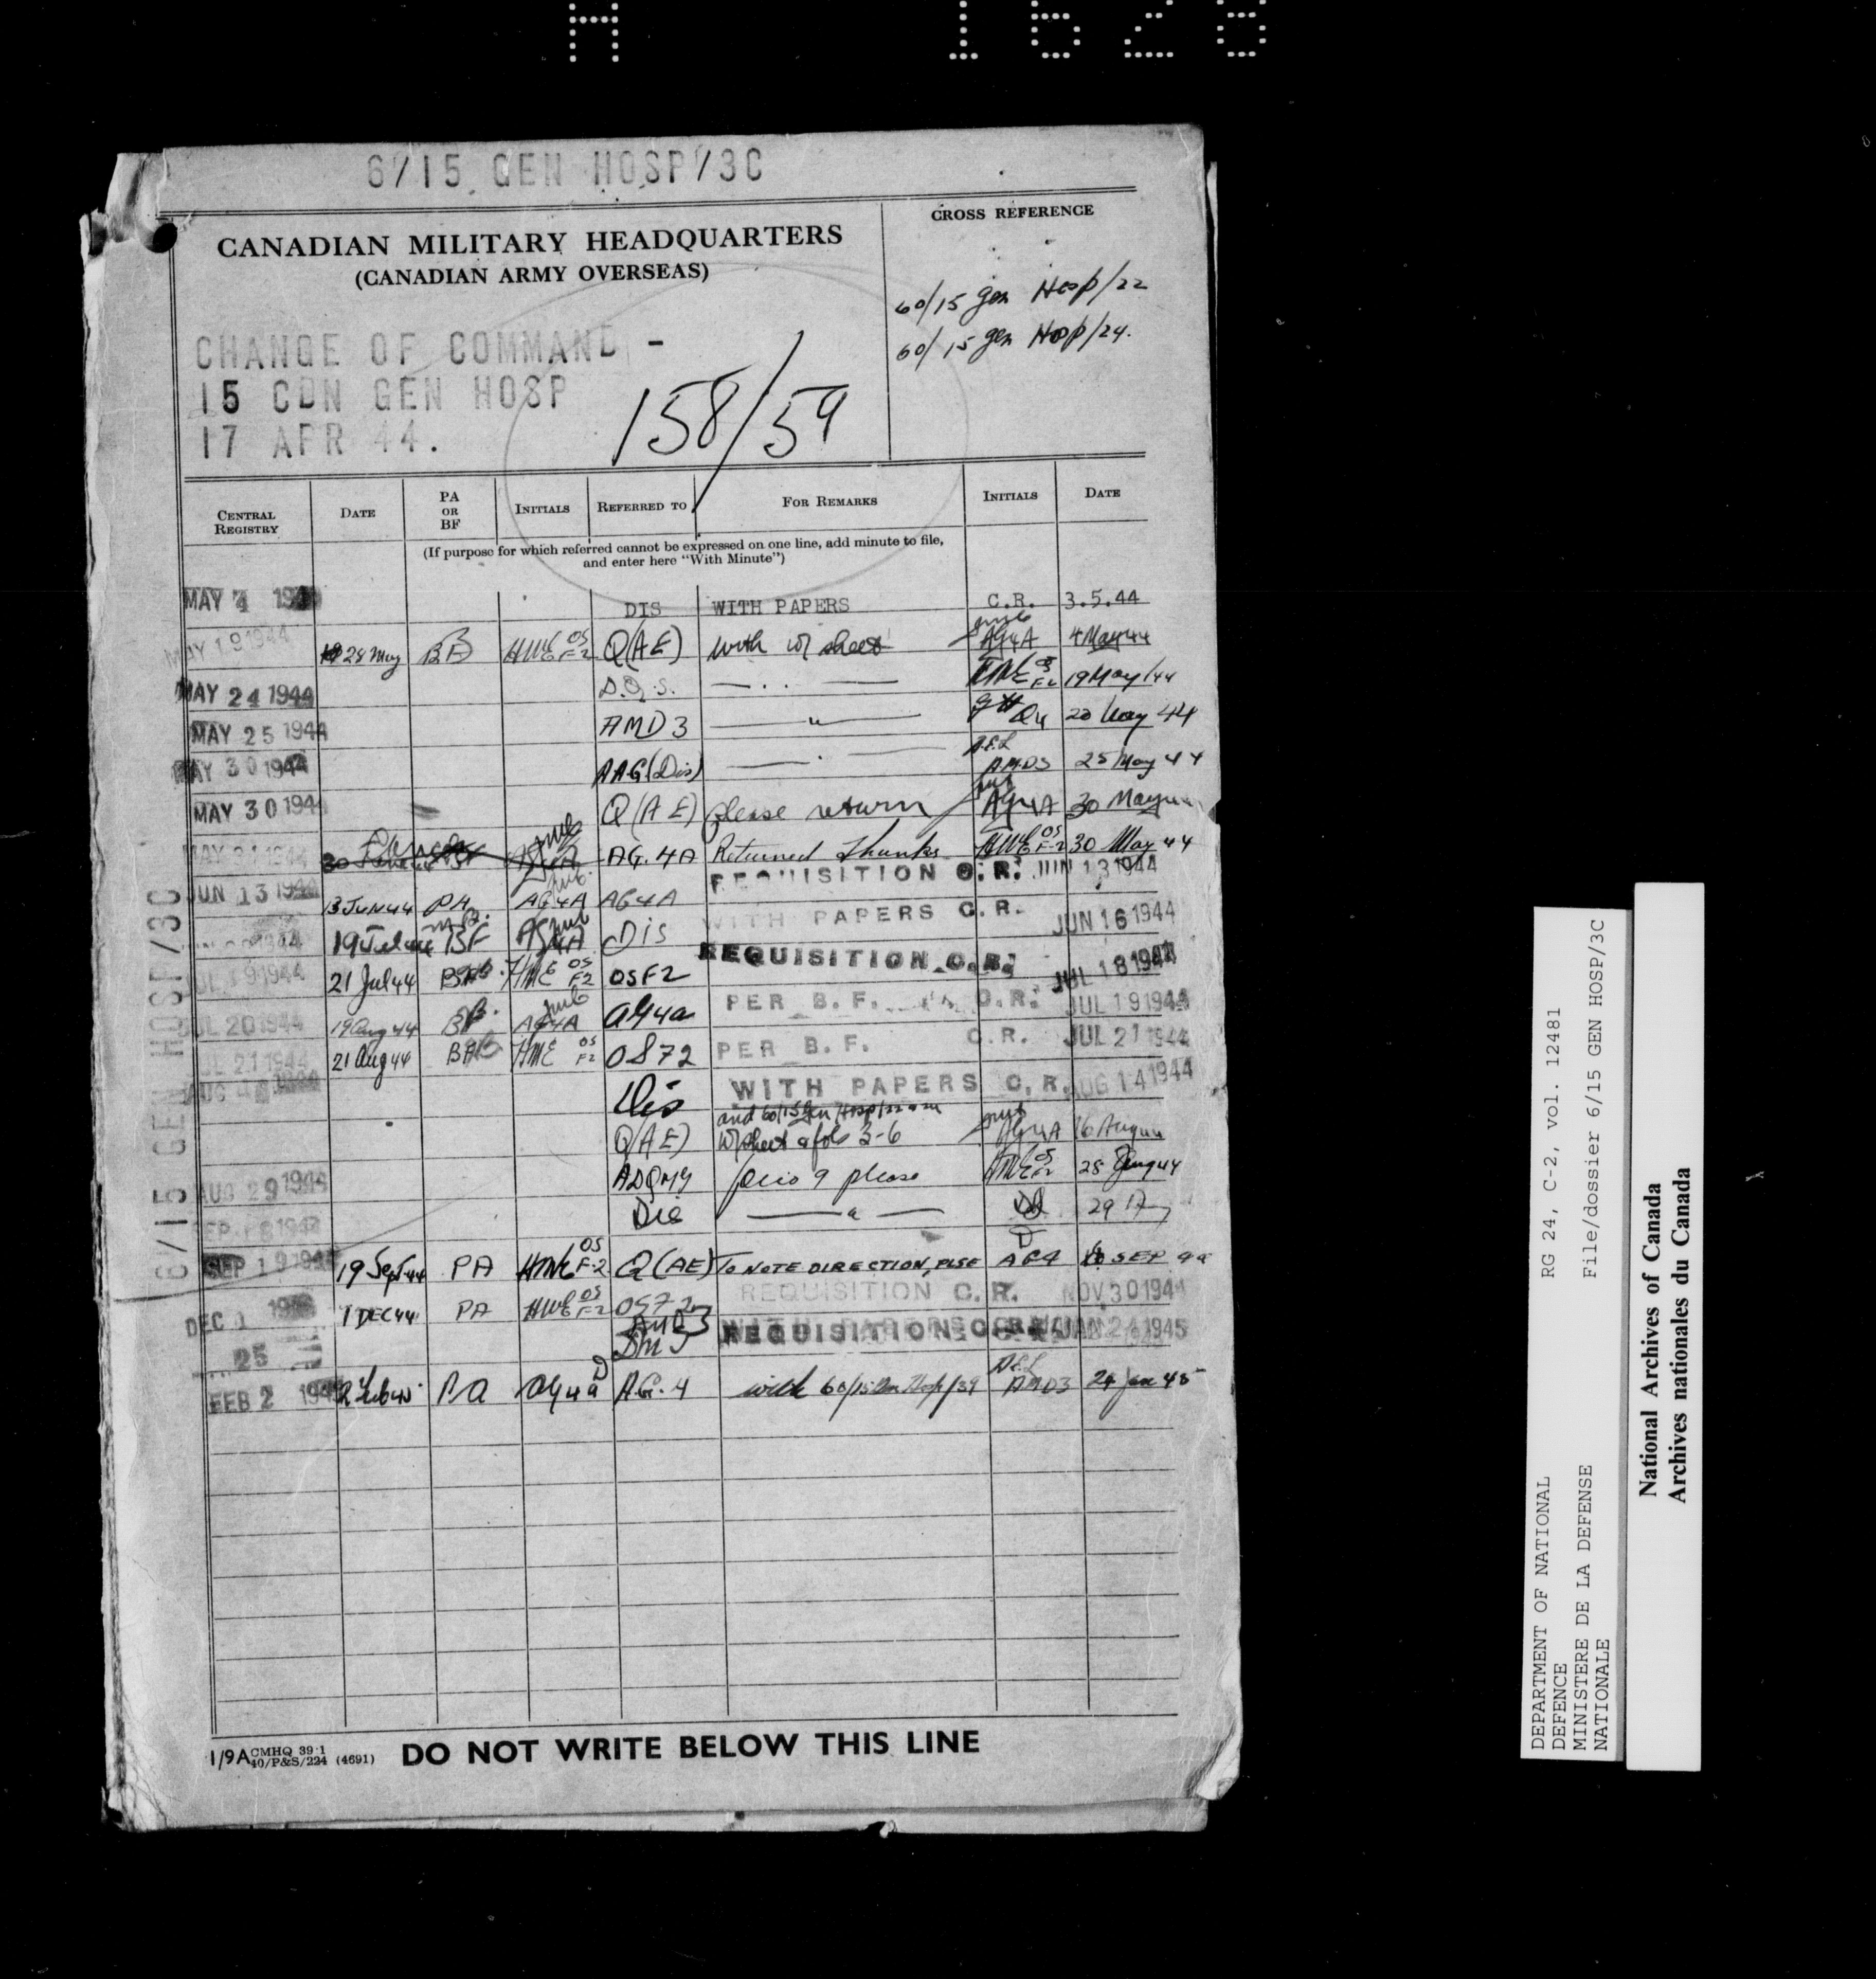 H 1628
6/15 GEN HOSP/3C
CANADIAN MILITARY HEADQUARTERS
(CANADIAN ARMY OVERSEAS)
CROSS REFERENCE
60/15 Gen Hosp/22
60/15 gen Hosp/24.
CHANGE OF COMMAND -
15 CDN GEN HOSP
17 APR 44.
158/59
CENTRAL REGISTRY DATE PA OR BF INITIALS REFERRED TO FOR REMARKS INITIALS DATE
(If purpose for which referred cannot be expressed on one line, add minute to file,
and enter here "With Minute")
MAY 4 194 DIS WITH PAPERS C.R. 3.5.44
MAY 19 1944 28 May BF OS F2 Q(AE) with W/ sheet AG4A 4 May 44
MAY 24 1944 D.Q.S. OS F2 19 May/44
MAY 25 1944 AMD 3 — " — Q4 20 May 44
MAY 30 1944 AAG(Dis) AMD3 25 May 44
MAY 30 194 Q(AE) please return AG4A 30 May
MAY 31 1944 AG.4A Returned thanks OS F-2 30 May 44
REQUISITION C.R. JUN 13 1944
JUN 13 1944 13 JUN 44 PA AG4A AG4A
WITH PAPERS C.R. JUN 16 1944
1944 19 Jul 44 BF AG4A Dis
REQUISITION C.R. JUL 18 1944
JUL 19 1944 21 Jul 44 OS F2 OSF2
PER B.F. C.R. JUL 19 1944
JUL 20 1944 19 Aug 44 BF AG4A AG4a
JUL 21 1944 21 Aug 44 OS F2 OSF2 PER B.F. C.R. JUL 21 1944
AUG Dis WITH PAPERS C.R. AUG 14 1944
and 60/15 Gen Hosp/22
Q(AE) W/ sheet a fols 3-6 AG4A 16 Aug
ADQMG folio 9 please OS F2 28 Aug 44
AUG 29 1944 Dis 29
SEP
SEP 19 194 19 Sept 44 PA OS F-2 Q(AE) TO NOTE DIRECTION, PLSE AG4 SEP 44
REQUISITION C.R. NOV 30 1944
DEC 1 19 1 DEC 44 PA OS F-2 OSF2
AMD3
25 REQUISITION C.R. JAN 24 1945
FEB 2 194 PA AG4a A.G.4 with 60/15 Gen Hosp/39 AMD3 24 Jan 45
6/15 GEN HOSP/3C
1/9A CMHQ 39·1
40/P&S/224 (4691)
DO NOT WRITE BELOW THIS LINE
DEPARTMENT OF NATIONAL
DEFENCE
MINISTERE DE LA DEFENSE
NATIONALE
RG 24, C-2, vol. 12481
File/dossier 6/15 GEN HOSP/3C
National Archives of Canada
Archives nationales du Canada